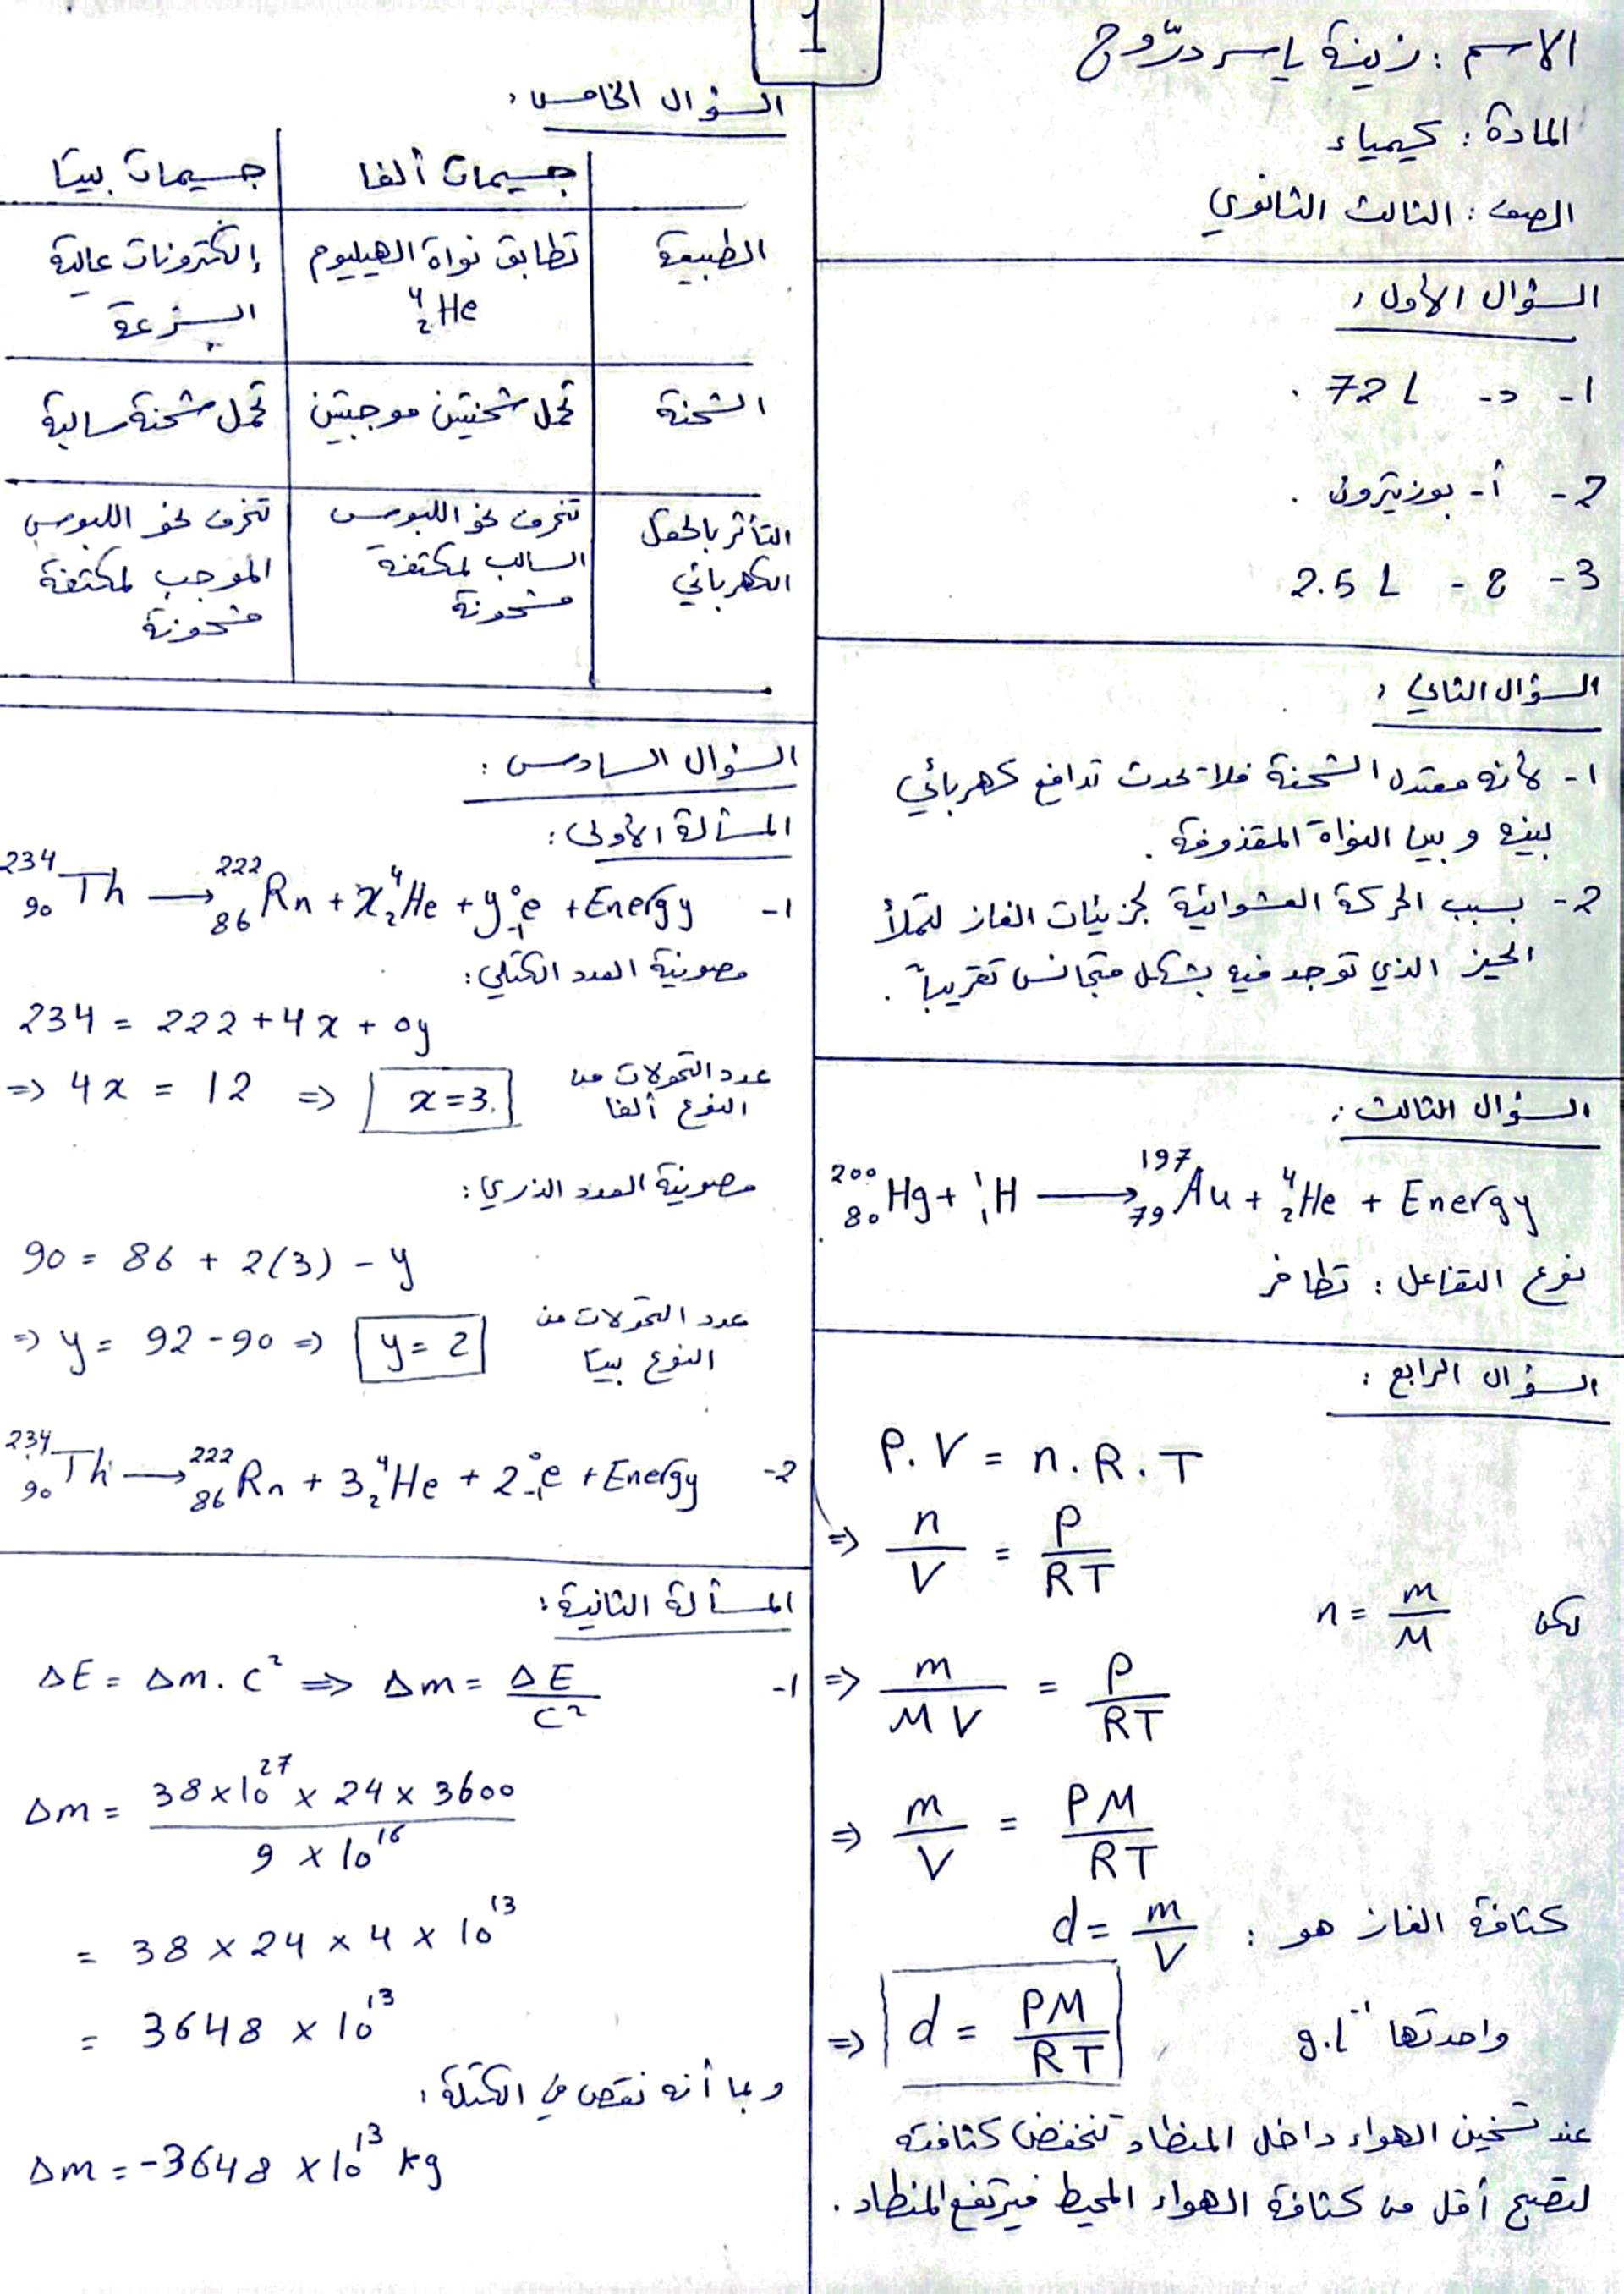 1
الاسم : زينة ياسر درّوج
المادة : كيمياء
الصف : الثالث الثانوي
السؤال الأول :
1- د- 72 L .
2- أ- بوزيترون .
3- ج- 2.5 L
السؤال الثاني :
1- لأنه معتدل الشحنة فلا يحدث تدافع كهربائي
بينه وبين النواة المقذوفة .
2- بسبب الحركة العشوائية لجزيئات الغاز لتملأ
الحيز الذي توجد فيه بشكل متجانس تقريباً .
السؤال الثالث :
²⁰⁰₈₀Hg + ¹₁H ⟶ ¹⁹⁷₇₉Au + ⁴₂He + Energy
نوع التفاعل : تطافر
السؤال الرابع :
P.V = n.R.T
⇒ n/V = P/RT
لكن n = m/M
⇒ m/MV = P/RT
⇒ m/V = PM/RT
كثافة الغاز هو : d = m/V
⇒ d = PM/RT واحدتها g.L⁻¹
عند تسخين الهواء داخل المنطاد تنخفض كثافته
لتصبح أقل من كثافة الهواء المحيط فيرتفع المنطاد .
السؤال الخامس :
جسيمات ألفا جسيمات بيتا
الطبيعة تطابق نواة الهيليوم إلكترونات عالية
⁴₂He السرعة
الشحنة تحمل شحنتين موجبتين تحمل شحنة سالبة
التأثر بالحقل تنحرف نحو اللبوس تنحرف نحو اللبوس
الكهربائي السالب لمكثفة الموجب لمكثفة
مشحونة مشحونة
السؤال السادس :
المسألة الأولى :
1- ²³⁴₉₀Th ⟶ ²²²₈₆Rn + x⁴₂He + y⁰₋₁e + Energy
مصونية العدد الكتلي :
234 = 222 + 4x + 0y
⇒ 4x = 12 ⇒ x = 3. عدد التحولات من
النوع ألفا
مصونية العدد الذري :
90 = 86 + 2(3) - y
⇒ y = 92 - 90 ⇒ y = 2 عدد التحولات من
النوع بيتا
2- ²³⁴₉₀Th ⟶ ²²²₈₆Rn + 3⁴₂He + 2⁰₋₁e + Energy
المسألة الثانية :
1- ΔE = Δm . C² ⇒ Δm = ΔE/C²
Δm = 38×10²⁷ × 24 × 3600 / 9 × 10¹⁶
= 38 × 24 × 4 × 10¹³
= 3648 × 10¹³
وبما أنه نقص في الكتلة :
Δm = -3648 × 10¹³ kg